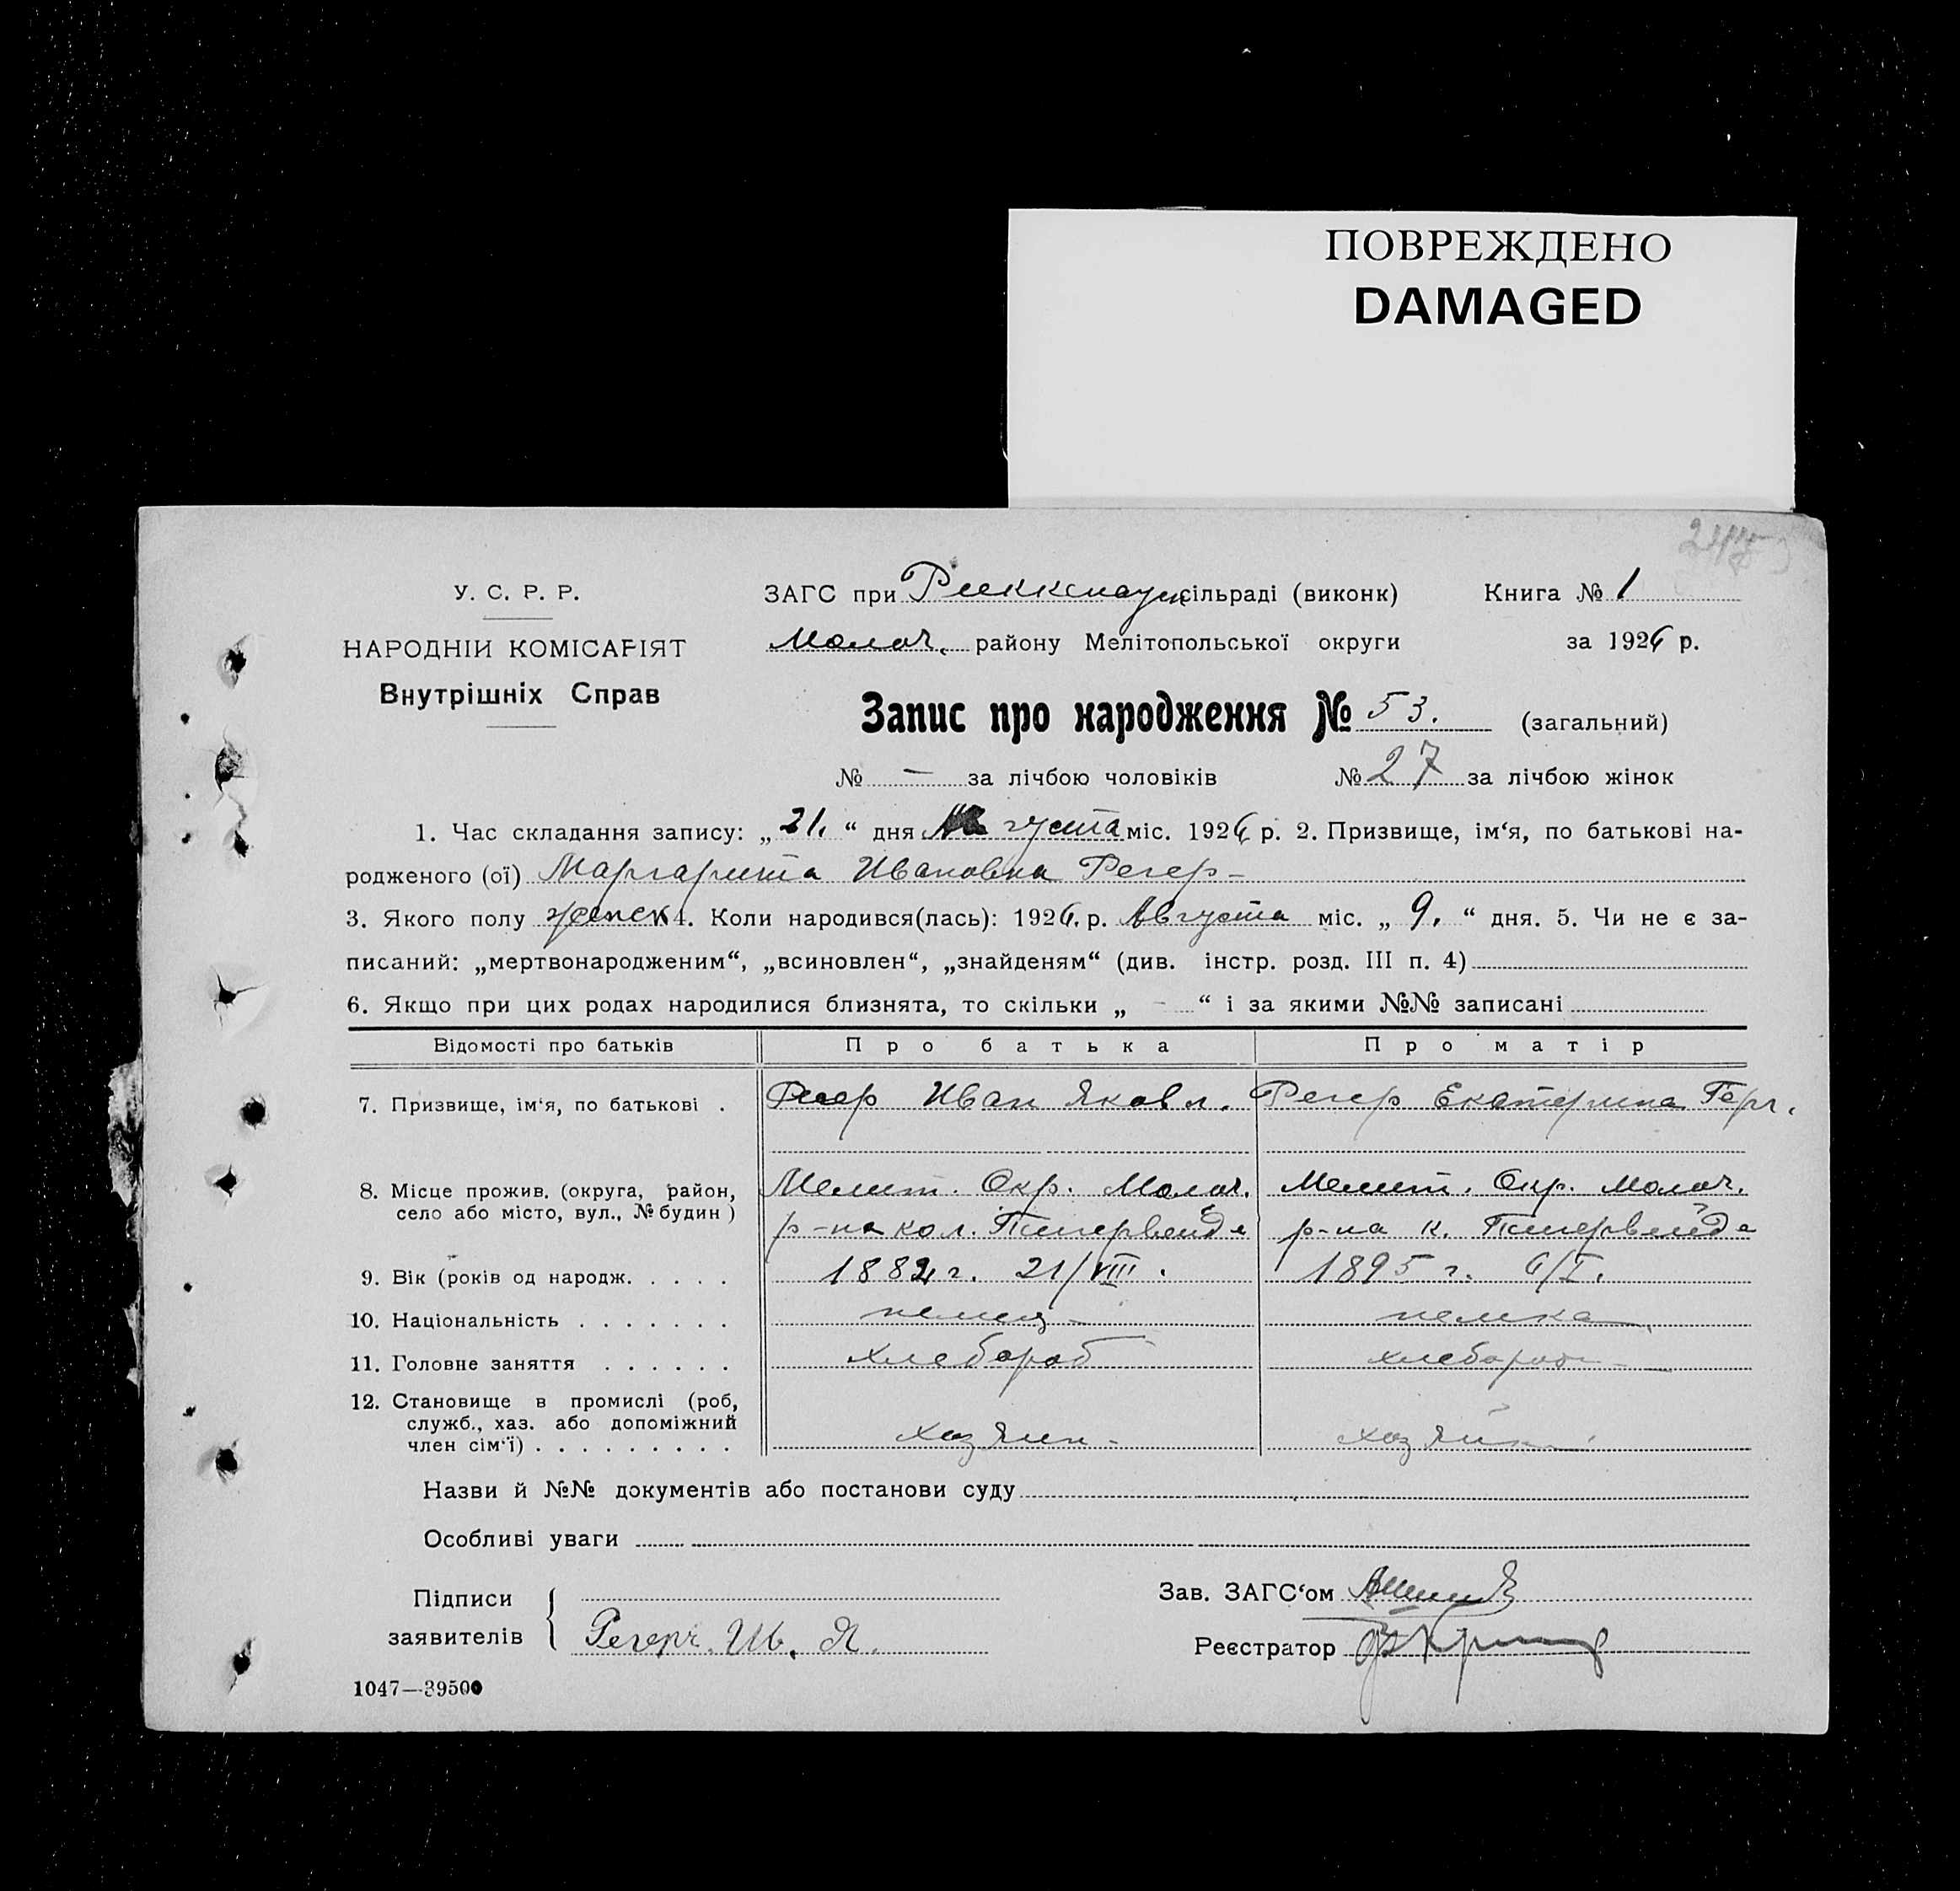 ПОВРЕЖДЕНО
DAMAGED
У. С. Р. Р.
НАРОДНІЙ КОМІСАРІЯТ
Внутрішніх Справ
ЗАГС при сільраді (виконк) Книга № 1
Молоч. району Мелітопольської округи за 1926 р.
Запис про народження № 53. (загальний)
№ — за лічбою чоловіків № 27 за лічбою жінок
1. Час складання запису: „21.“ дня Августа міс. 1926 р. 2. Призвище, ім‘я, по батькові на-
родженого (ої) Маргарита Ивановна Регер -
3. Якого полу женск 4. Коли народився(лась): 1926. р. Августа міс. „ 9. “ дня. 5. Чи не є за-
писаний: „мертвонародженим“, „всиновлен“, „знайденям“ (див. інстр. розд. III п. 4)
6. Якщо при цих родах народилися близнята, то скільки „ - “ і за якими №№ записані
Відомості про батьків Про батька Про матір
7. Призвище, ім‘я, по батькові . Регер Иван Яковл. Регер Екатерина Герг.
8. Місце прожив. (округа, район, Мелит. Окр. Молоч. Мелит. Окр. Молоч.
село або місто, вул., № будин) р-на кол. Тигервейде р-на к. Тигервейде
9. Вік (років од народж. . . . . 1882 г. 21/VIII. 1895 г. 6/I.
10. Національність . . . . . . . немец - немка
11. Головне заняття . . . . . . хлебороб хлебороб -
12. Становище в промислі (роб,
служб., хаз. або допоміжний
член сім‘ї) . . . . . . . . . хозяин - хозяйка
Назви й №№ документів або постанови суду
Особливі уваги
Підписи Зав. ЗАГС‘ом
заявителів Регер. Ив. Я. Реєстратор
1047—39500